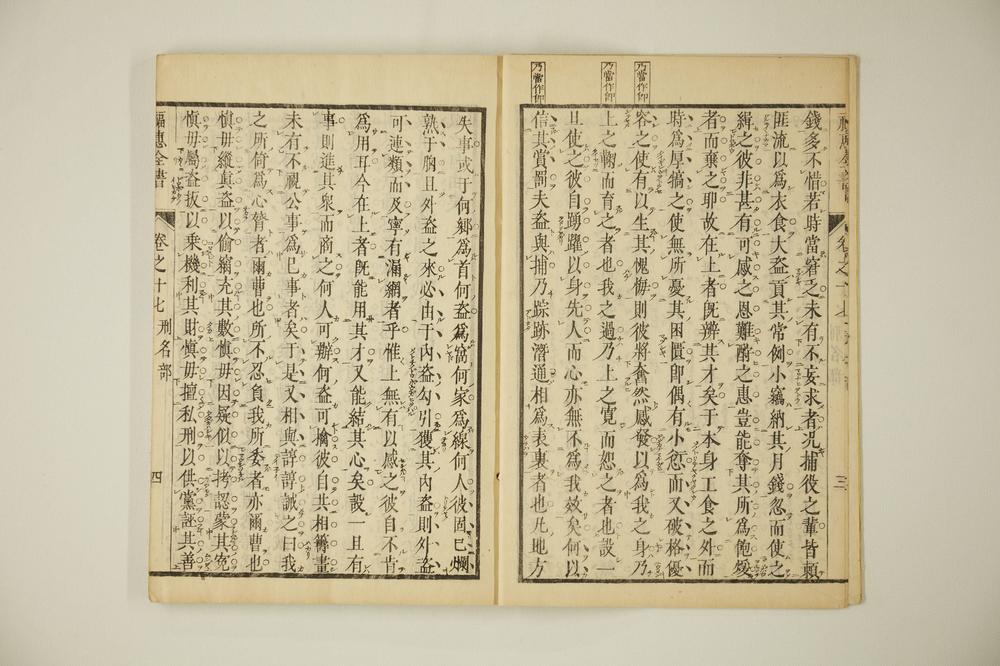 乃當作仰
乃當作仰
乃當作仰
錢多不惜若時當窘之未有不妄求者况捕役之輩皆賴
匪流以為衣食大盗貢其常例小竊納其月錢忽而使之
緝之彼非甚有可感之恩難酧之惠豈能奪其所為飽煖
者而棄之耶故在上者旣辨其才矣于本身工食之外而
時為厚犒之使無所憂其困匱即偶有小愆而又破格優
容之使有以生其愧悔則彼將奮然感發以為我之身乃
上之鞠而育之者也我之過乃上之寬而恕之者也設一
旦使之彼自踴躍以身先人而心亦無不為我效矣何以
信其賞罰夫盗與捕乃踪跡潛通相為表裏者也凡地方
三
失事或于何鄉為首何盗為窩何家為線何人彼固已爛
熟于胸且外盗之來必由于内盗勾引獲其内盗則外盗
可連類而及寧有漏網者乎惟上無有以感之彼自不肯
為用耳今在上者旣能用其才又能結其心矣設一旦有
事則進其衆而商之何人可辦何盗可擒彼自共相籌畫
未有不視公事為已事者矣于是又相與諄諄誡之曰我
之所倚為心膂者爾曹也所不忍負我所委者亦爾曹也
愼毋縱眞盗以偷竊充其數愼毋因疑似以拷認蒙其寃
愼毋屬盗扳以乘機利其財愼毋擅私刑以供黨誣其善
福惠全書 卷之十七 刑名部 四